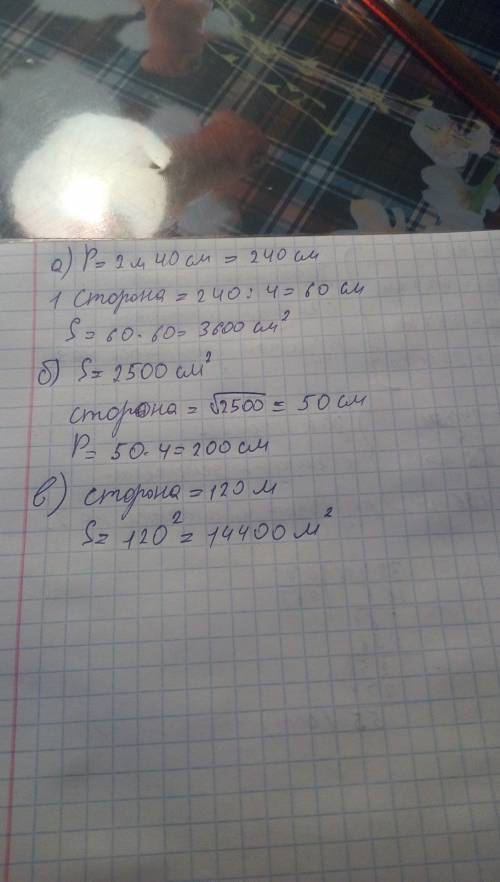 а) P = 2 м 40 см = 240 см
1 сторона = 240 : 4 = 60 см
S = 60 · 60 = 3600 см²
б) S = 2500 см²
сторона = √2500 = 50 см
P = 50 · 4 = 200 см
в) сторона = 120 м
S = 120² = 14400 м²